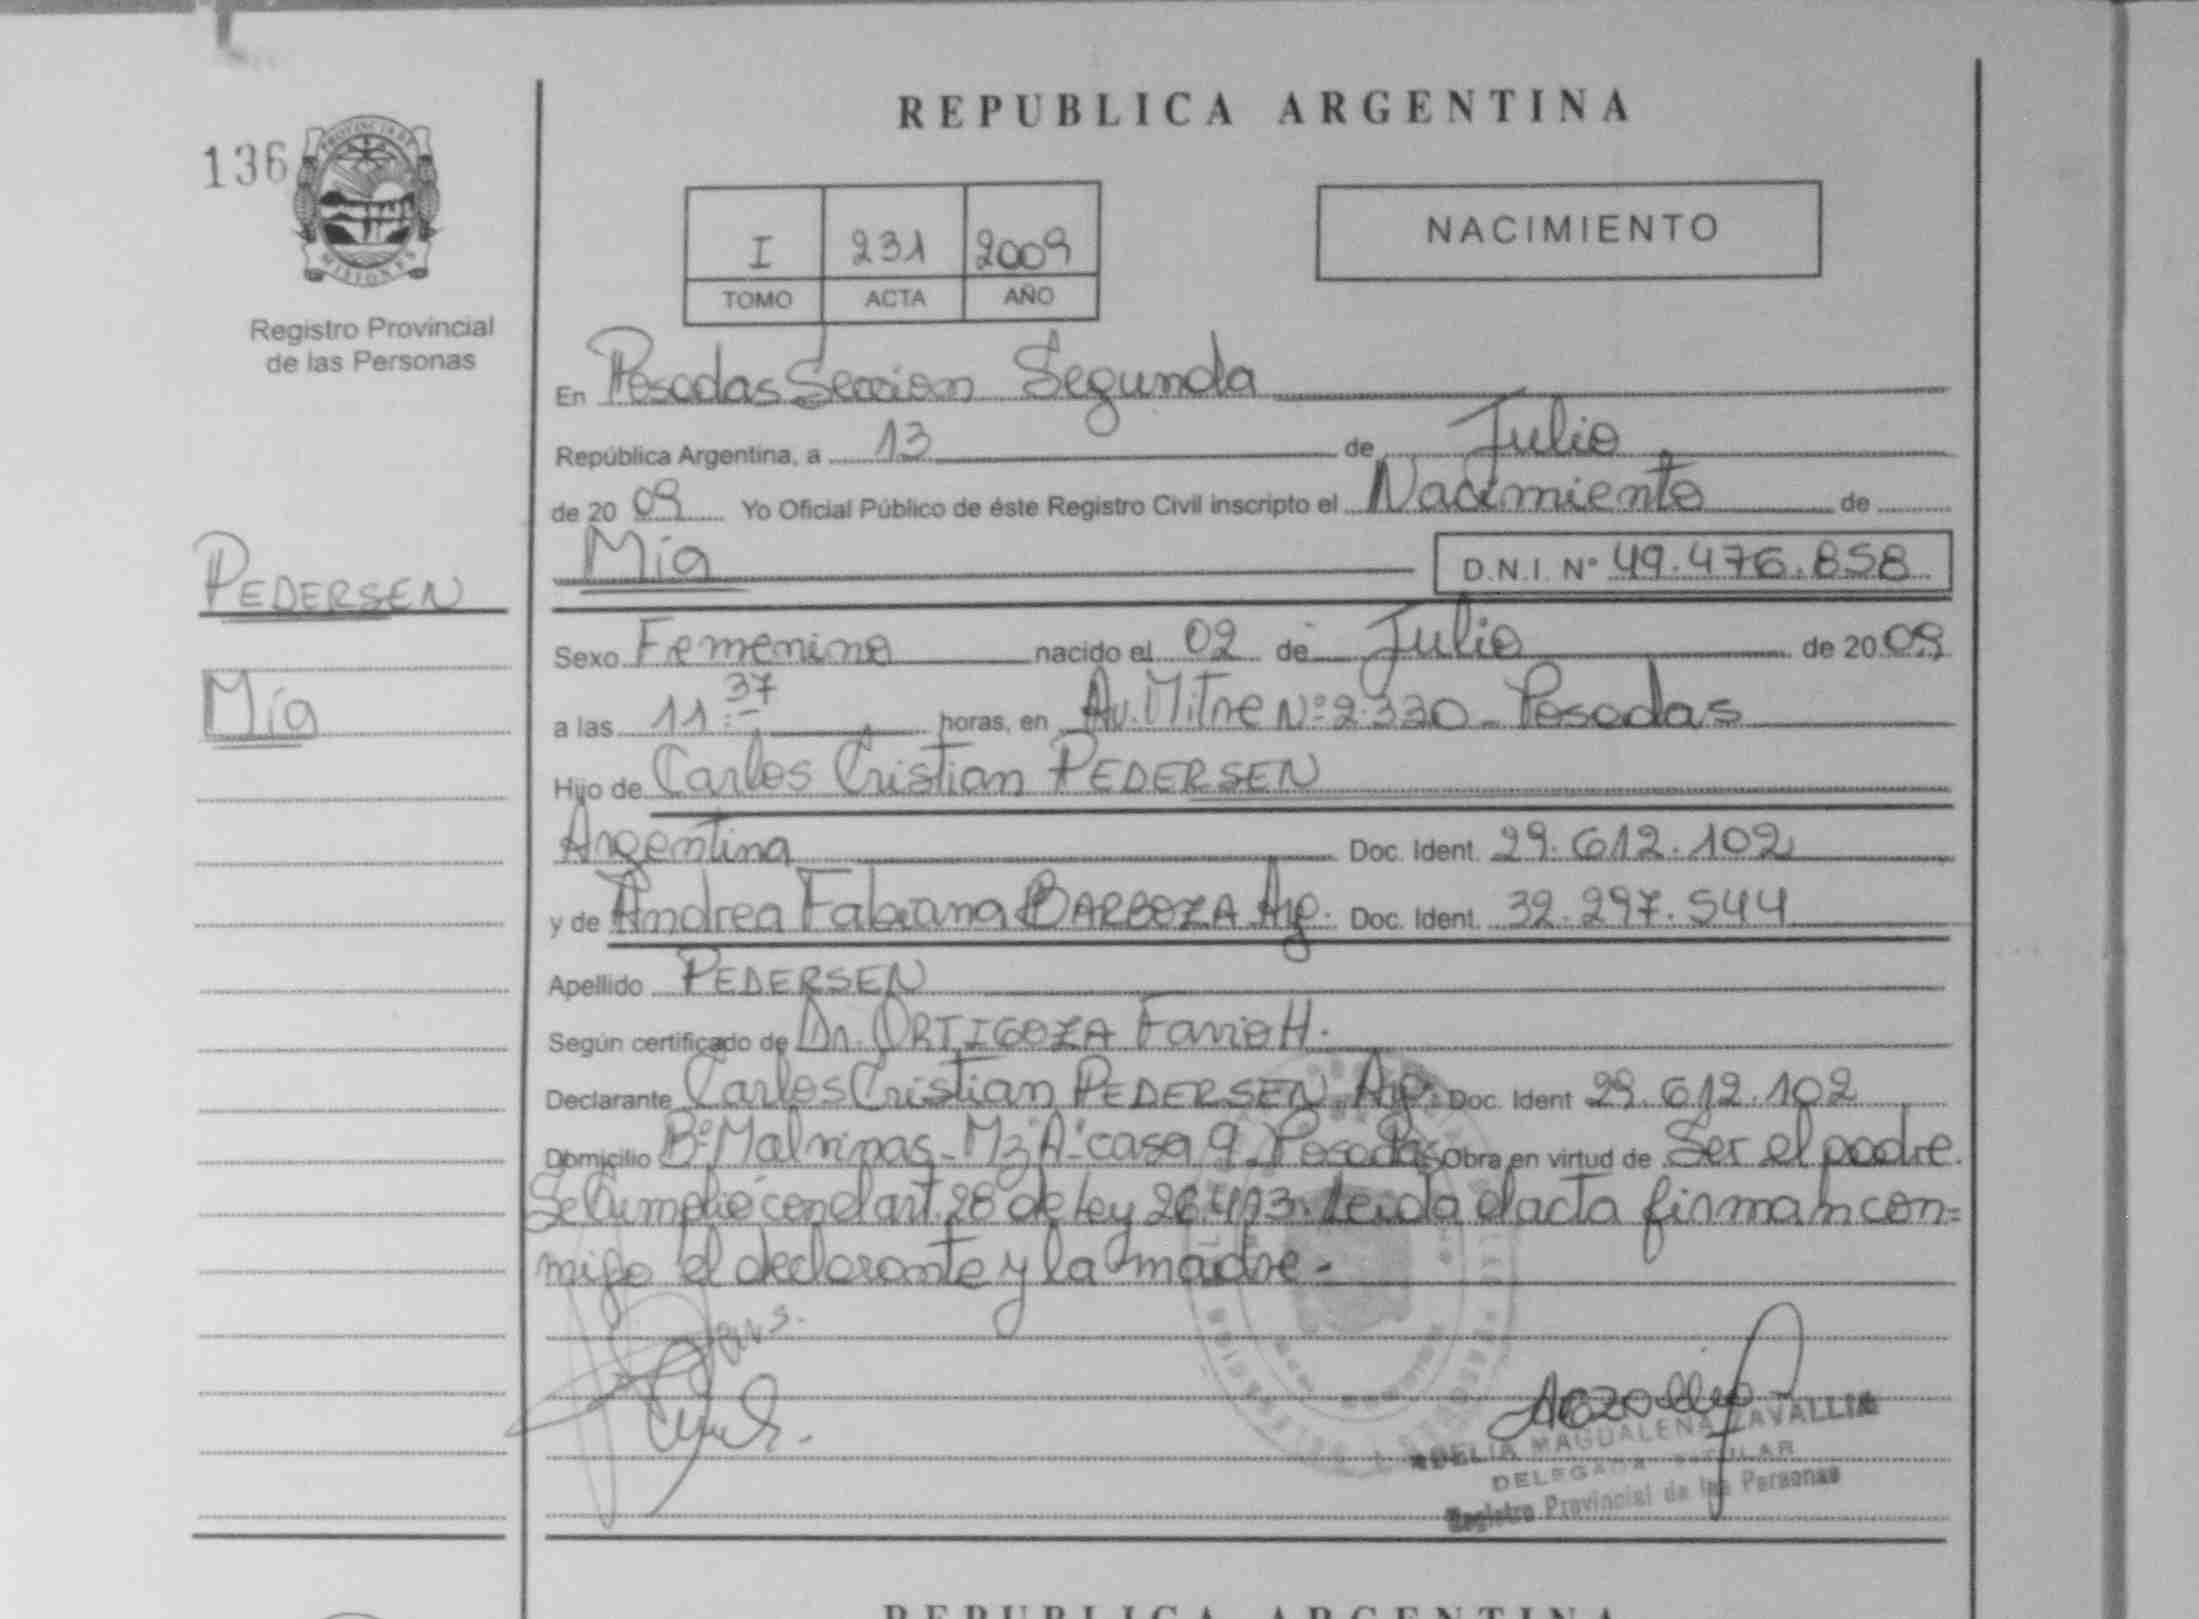 REPUBLICA ARGENTINA
136
PROVINCIA DE
MISIONES
Registro Provincial
de las Personas
I 231 2009
TOMO ACTA AÑO
NACIMIENTO
En Posadas Seccion Segunda
República Argentina, a 13 de Julio
de 20 09 Yo Oficial Público de éste Registro Civil inscripto el Nacimiento de
PEDERSEN
Mía
Mía D.N.I. Nº 49.476.858
Sexo Femenino nacido el 02 de Julio de 20 09
a las 11:37 horas, en Av. Mitre Nº 2.330 - Posadas
Hijo de Carlos Cristian PEDERSEN
Argentina Doc. Ident. 29.612.102
y de Andrea Fabiana BARBOZA Arg. Doc. Ident. 32.297.544
Apellido PEDERSEN
Según certificado de Dr. ORTIGOZA Favio H.
Declarante Carlos Cristian PEDERSEN Arg. Doc. Ident 29.612.102
Domicilio Bº Malvinas - Mz "A" casa 9 - Posadas Obra en virtud de Ser el padre.
Se Cumplió con el art. 28 de Ley 26.413. Leida el acta firman con=
migo el declarante y la madre -
ADELIA MAGDALENA ZAVALLIA
DELEGADA TITULAR
Registro Provincial de las Personas
REPUBLICA ARGENTINA